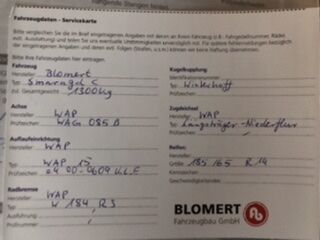 Fahrzeugdaten - Servicekarte
Bitte vergleichen Sie die im Brief eingetragenen Angaben mit den an Ihrem Fahrzeug (z.B. Fahrgestellnummer, Räder,
evtl. Ausstattung) und teilen Sie uns eventuelle Unstimmigkeiten unverzüglich mit. Für spätere Fehlermeldungen bezüglich
der eingetragenen Angaben und deren evtl. Folgen (Strafen, u.s.m.) können wir keine Haftung übernehmen.
Bitte Ihre Fahrzeugdaten hier eintragen.
Fahrzeug
Hersteller Blomert
Typ Smaragd C
zul. Gesamtgewicht 1300kg
Achse
Hersteller WAP
Prüfzeichen WAG 085 B
Auflaufeinrichtung
Hersteller WAP
Typ WAP 15
Prüfzeichen
Radbremse
Hersteller WAP
Typ W 184, RS
Ausführung
Prüfnummer
Kugelkupplung
Identifikationsnummer
Typ Winterhoff
Prüfzeichen
Zugdeichsel
Hersteller WAP
Typ Langsträger-Niederflur
Prüfzeichen
Reifen
Hersteller
Größe 185/65 R14
Kennzeichen
Geschwindigkeitsindex
BLOMERT
Fahrzeugbau GmbH